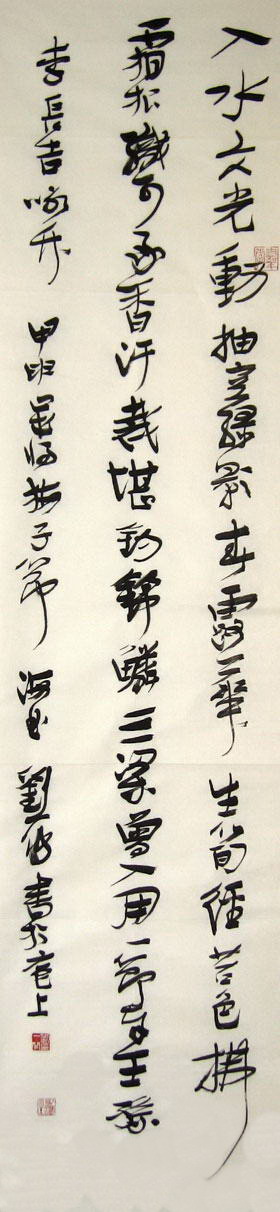 入水文光動抽空綠影春露華生筍徑苔色拂
霜根織可承香汗裁堪釣錦鱗三梁曾入用一節奉王孫
李長吉咏竹 甲申 子節 劉 書於 上